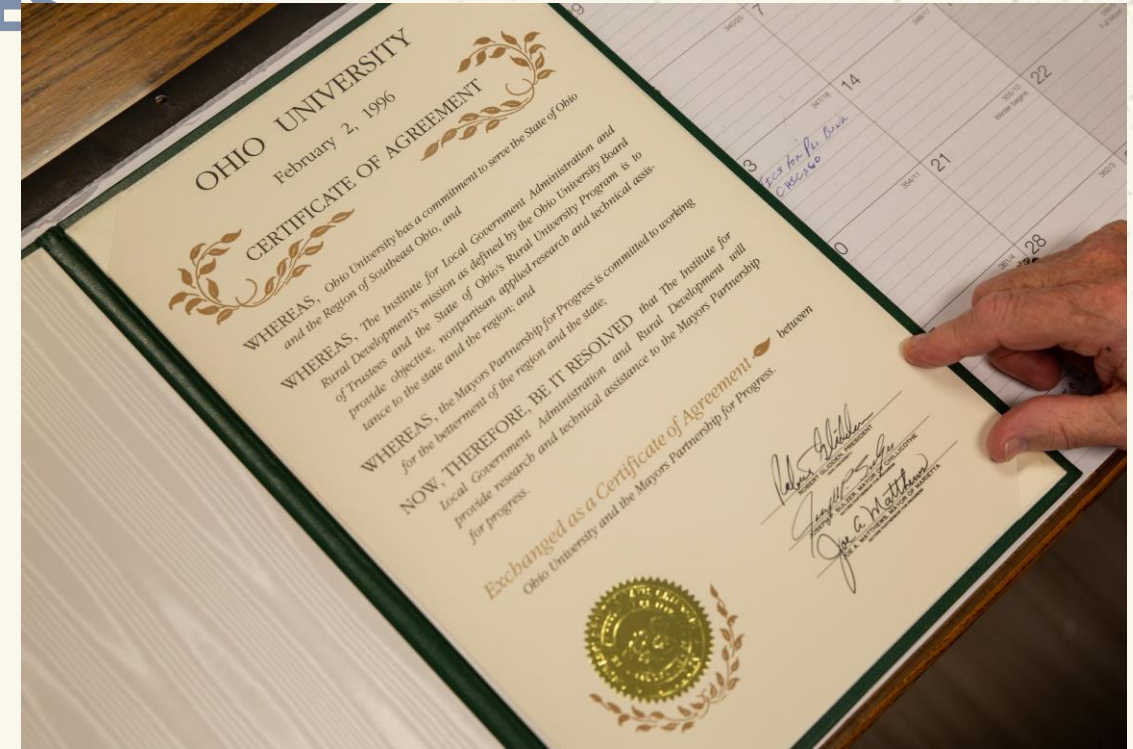 OHIO UNIVERSITY
February 2, 1996
CERTIFICATE OF AGREEMENT
WHEREAS, Ohio University has a commitment to serve the State of Ohio
and the Region of Southeast Ohio, and
WHEREAS, The Institute for Local Government Administration and
Rural Development's mission as defined by the Ohio University Board
of Trustees and the State of Ohio's Rural University Program is to
provide objective, nonpartisan applied research and technical assis-
tance to the state and the region; and
WHEREAS, the Mayors Partnership for Progress is committed to working
for the betterment of the region and the state;
NOW, THEREFORE, BE IT RESOLVED that The Institute for
Local Government Administration and Rural Development will
provide research and technical assistance to the Mayors Partnership
for progress.
Exchanged as a Certificate of Agreement between
Ohio University and the Mayors Partnership for Progress.
ROBERT GLIDDEN, PRESIDENT
JOSEPH P. SULZER, MAYOR OF CHILLICOTHE
Joe A. Matthews
JOE A. MATTHEWS, MAYOR OF MARIETTA
7
14
347/18
22
Winter begins
21
354/11
28
CHICAGO